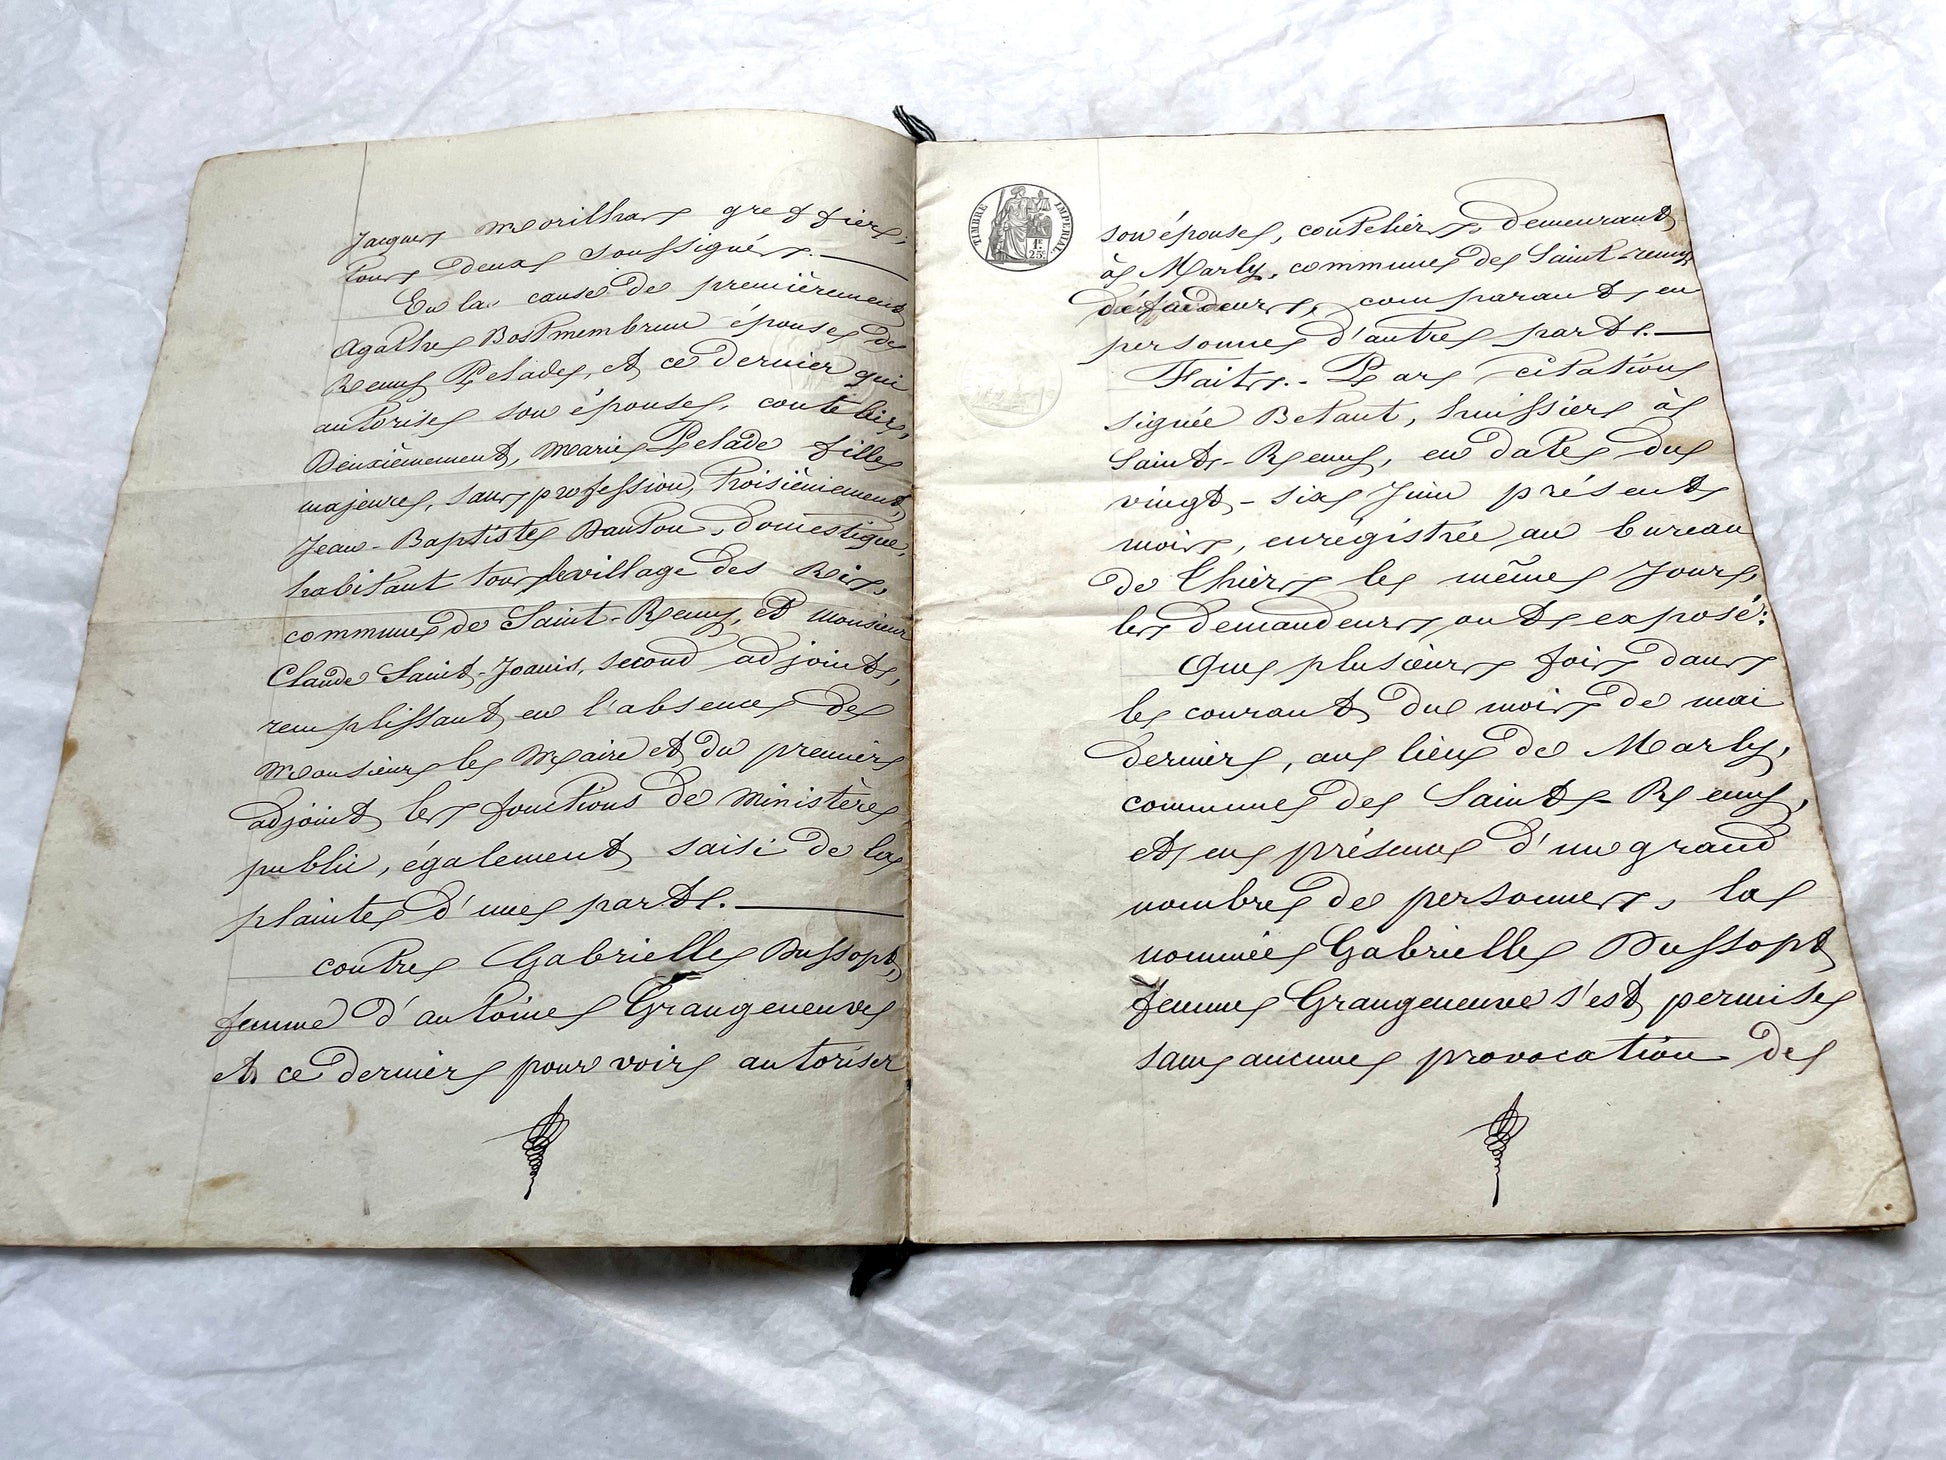 Jacques Morilhas greffier,
tous deux soussignés.
En la cause de premièrement
Agathe Bostmembrun épouse de
Remy Pelade, et ce dernier qui
autorise son épouse, coutelier,
Deuxièmement, Marie Pelade fille
majeure, sans profession, troisièmement,
Jean-Baptiste Dauton, domestique,
habitant tous le village des Ris,
commune de Saint-Remy, et monsieur
Claude Saint-Joanis, second adjoint,
remplissant en l'absence de
Monsieur le Maire et du premier
adjoint les fonctions de Ministère
public, également saisi de la
plainte d'une part.
contre Gabrielle Dussopt,
femme d'antoine Grangeneuve
et ce dernier pour voir autoriser
TIMBRE IMPERIAL
1F.
25c.
son épouse, couteliers, demeurant
à Marly, commune de Saint-remy
défendeurs, comparant en
personne d'autre part.
Faits.- Par citation
signée Betant, huissier à
Saint-Remy, en date du
vingt-six Juin présent
mois, enrégistrée au bureau
de Thiers le même jour,
les demandeurs ont exposé:
Que plusieurs fois dans
le courant du mois de mai
dernier, au lieu de Marly,
commune de Saint-Remy,
et en présence d'un grand
nombre de personnes, la
nommée Gabrielle Dussopt
femme Grangeneuve s'est permise
sans aucune provocation de